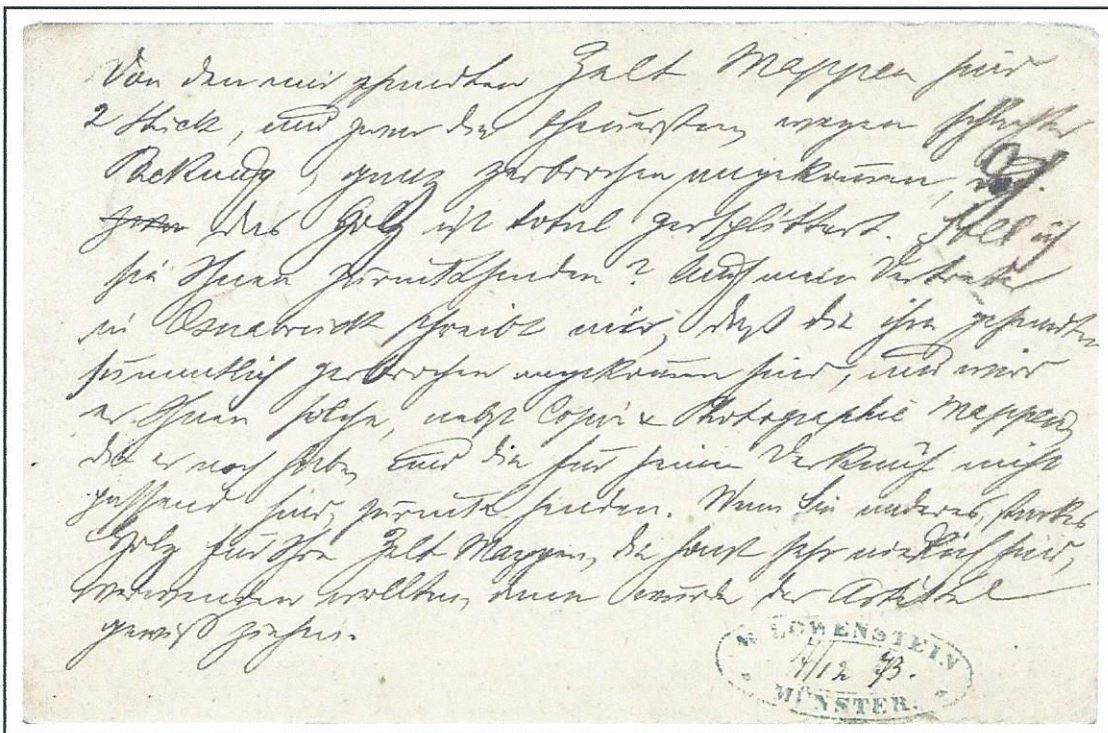 Von den mir gesandten Zelt Mappen sind
2 Stück, und zwar die theuersten, wegen schlechter
Packung, ganz zerbrochen angekommen,
das Holz ist total zersplittert. Soll ich
sie Ihnen zurücksenden? Auch mein Vertreter
in Osnabrück schreibt mir, daß die ihm gesandten
sämmtlich zerbrochen angekommen sind, und wird
er Ihnen solche, nebst Copir & Photographie Mappen,
die er noch habe, und die für seinen Verkauf nicht
passend sind, zurück senden. Wenn Sie anderes, starkes
Holz für Ihre Zelt Mappen, die sonst sehr niedlich sind,
verwenden wollten, dann würde der Artikel
gewiß ziehen.
M. LÖWENSTEIN
4/12 73.
MÜNSTER.